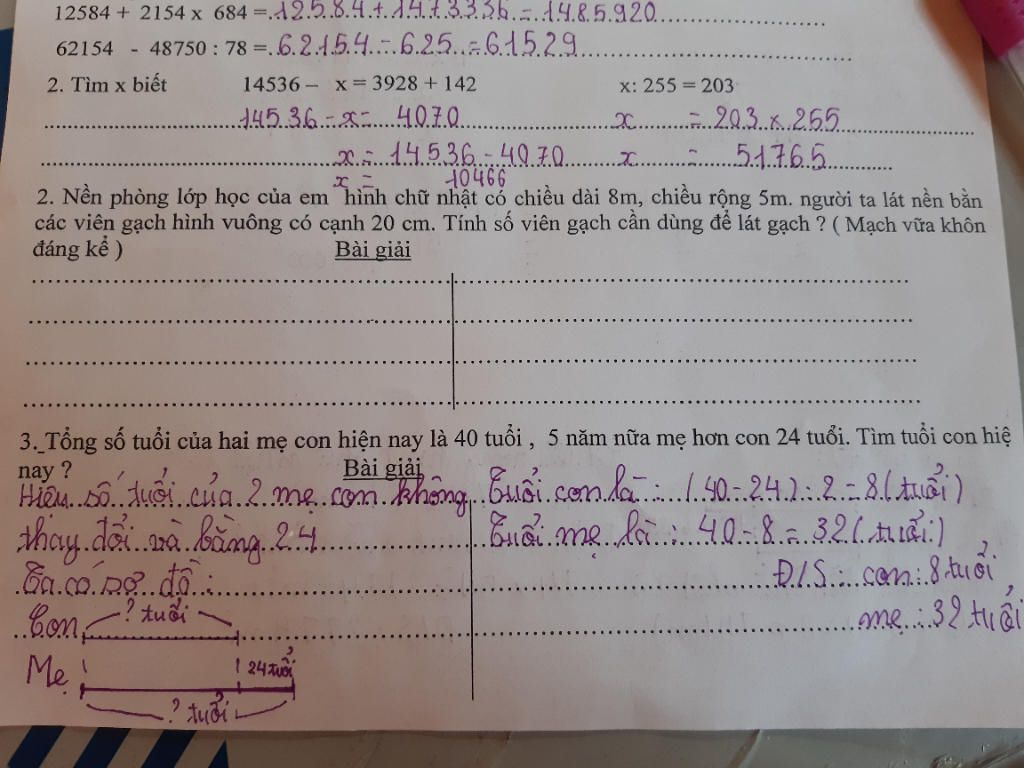 12584 + 2154 x 684 = 12584 + 1473336 = 1485920
62154 - 48750 : 78 = 62154 - 625 = 61529
2. Tìm x biết 14536 – x = 3928 + 142 x: 255 = 203
14536 - x = 4070 x = 203 x 255
x = 14536 - 4070 x = 51765
x = 10466
2. Nền phòng lớp học của em hình chữ nhật có chiều dài 8m, chiều rộng 5m. người ta lát nền bằn
các viên gạch hình vuông có cạnh 20 cm. Tính số viên gạch cần dùng để lát gạch ? ( Mạch vữa khôn
đáng kể ) Bài giải
3. Tổng số tuổi của hai mẹ con hiện nay là 40 tuổi , 5 năm nữa mẹ hơn con 24 tuổi. Tìm tuổi con hiệ
nay ? Bài giải
Hiệu số tuổi của 2 mẹ con không Tuổi con là : (40 - 24) : 2 = 8 (tuổi)
thay đổi và bằng 24 Tuổi mẹ là : 40 - 8 = 32 (tuổi)
Ta có sơ đồ : Đ/S : con : 8 tuổi
Con ? tuổi mẹ : 32 tuổi
Mẹ 24 tuổi
? tuổi